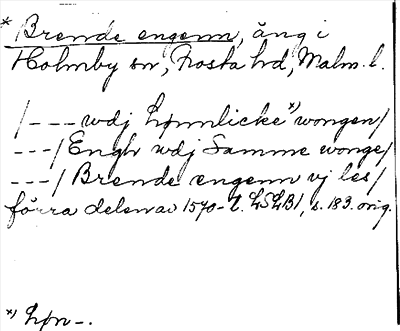 * Brende engenn, äng i
Holmby sn, Frosta hd, Malm. l.
/--- wdj Lynnlicke *) wongen/
---/ Engh wdj Samme wonge/
---/ Brende engenn vj les/
förra delen av 1570-t. LSLB1, s. 183. orig.
*) Lyn-.